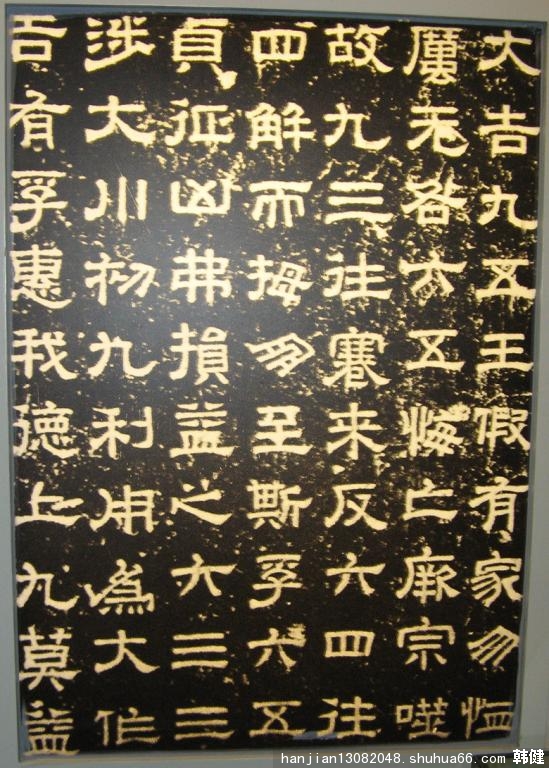 大吉九五王假有家勿恤
厲无咎六五悔亡厥宗噬
故九三往蹇来反六四往
四解而拇朋至斯孚六五
貞征凶弗損益之六三三
涉大川初九利用為大作
吉有孚惠我德上九莫益
hanjian13082048.shuhua66.com 韩健